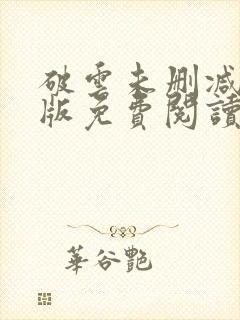 破雲未刪減
版免費閱讀
華谷艷